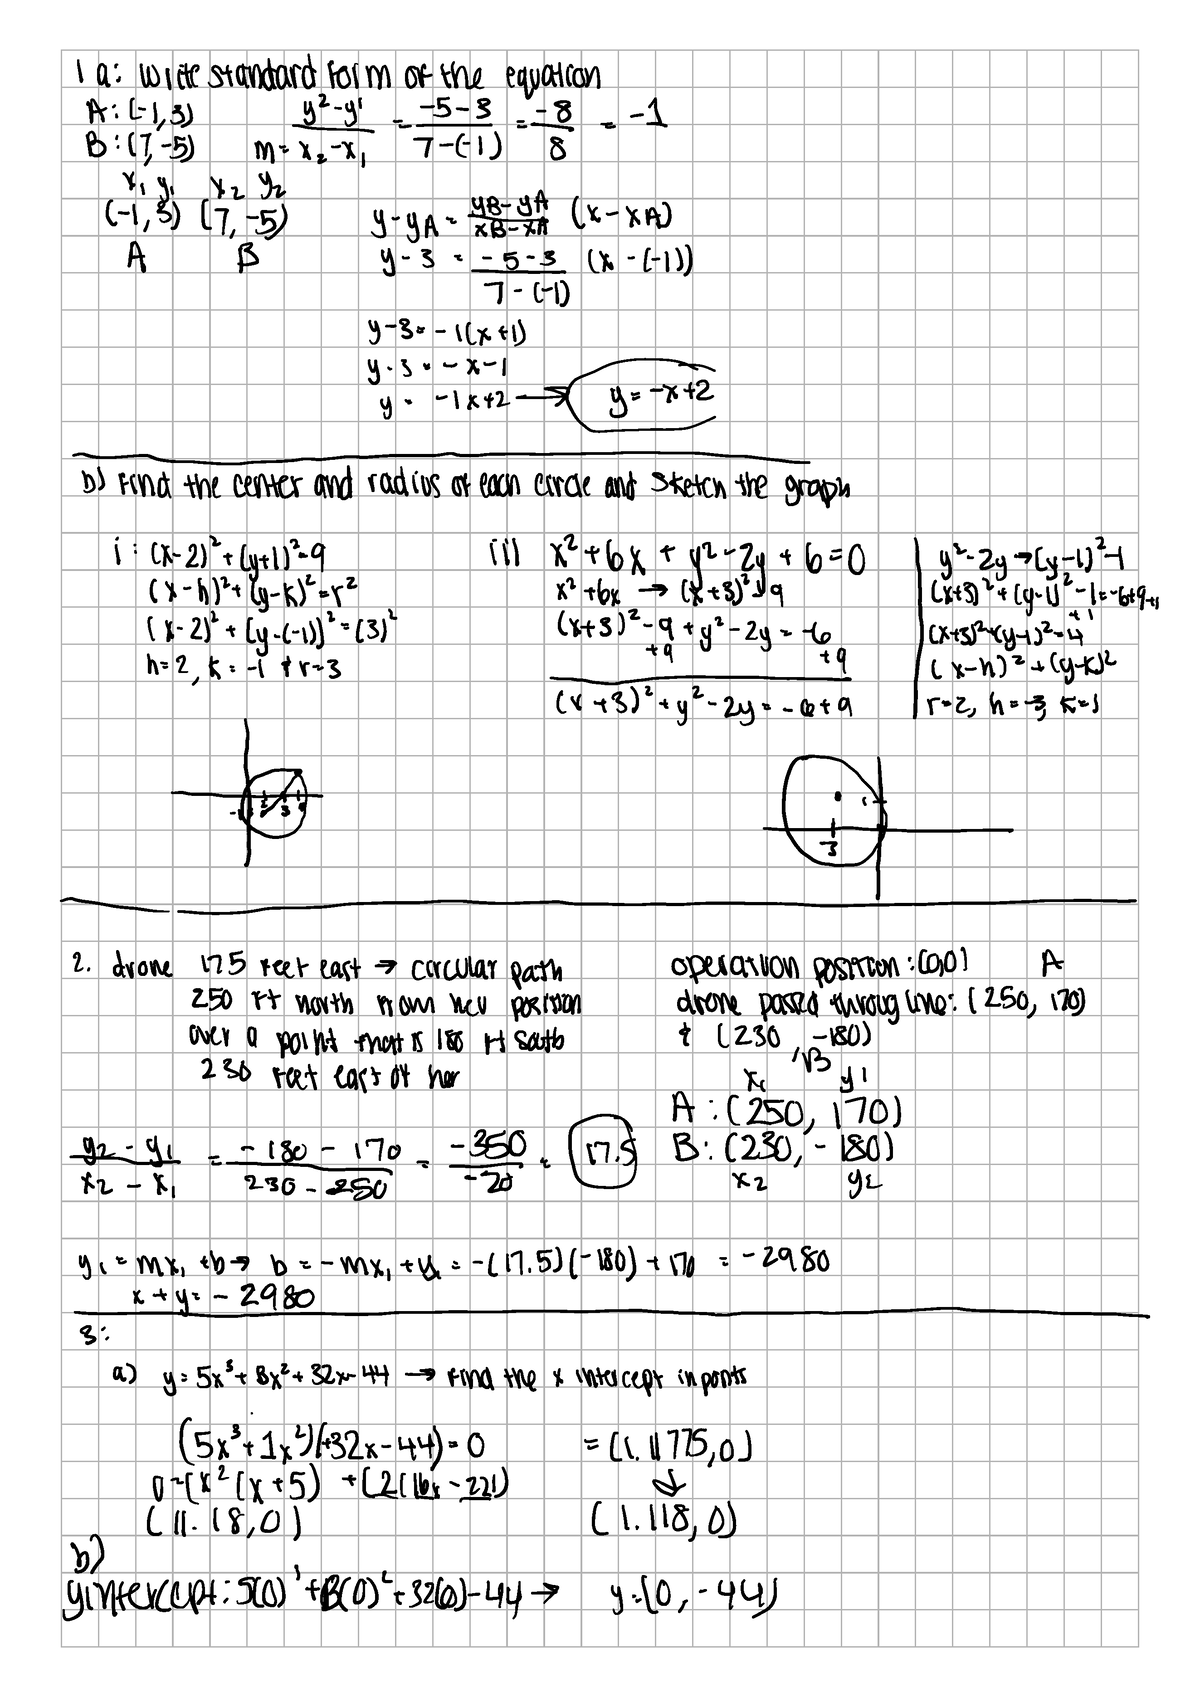 1 a: write standard form of the equation
A: (-1, 3)
B: (7, -5)
m = y2-y1 / x2-x1 = -5-3 / 7-(-1) = -8 / 8 = -1
x1 y1 x2 y2
(-1, 3) (7, -5)
A B
y-yA = yB-yA / xB-xA (x-xA)
y-3 = -5-3 / 7-(-1) (x-(-1))
y-3 = -1(x+1)
y-3 = -x-1
y = -1x+2 → y = -x+2
b) Find the center and radius of each circle and sketch the graph
i: (x-2)²+(y+1)²=9
(x-h)²+(y-k)²=r²
(x-2)²+(y-(-1))²=(3)²
h=2, k=-1 & r=3
-1 2 3
ii) x²+6x+y²-2y+6=0
x²+6x → (x+3)²-9
(x+3)²-9+y²-2y=-6
+9 +9
(x+3)²+y²-2y=-6+9
y²-2y→(y-1)²-1
(x+3)²+(y-1)²-1=-6+9+1
+1
(x+3)²+(y-1)²=4
(x-h)²+(y-k)²
r=2, h=-3, k=1
1
-3
2. drone 175 feet east → circular path
250 ft north from her position
over a point that is 180 ft south
230 feet east of her
operation position: (0,0) A
drone passed throug line: (250, 170)
& (230, -180)
B
x1 y1
A: (250, 170)
B: (230, -180)
x2 y2
y2-y1 / x2-x1 = -180-170 / 230-250 = -350 / -20 = 17.5
y1=mx1+b→ b=-mx1+y1=-(17.5)(-180)+170 = -2980
x+y=-2980
3:
a) y=5x³+8x²+32x-44 → find the x intercept in ponts
(5x³+1x²)(+32x-44)=0 =(1.11775,0)
0=(x²(x+5) +(2(16x-22))
(11.18,0) (1.118,0)
b)
yintercept: 5(0)³+8(0)²+32(0)-44 → y:(0,-44)